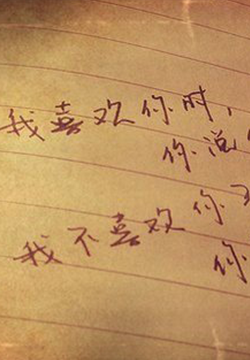 我喜欢你时，
你说
我不喜欢你
你